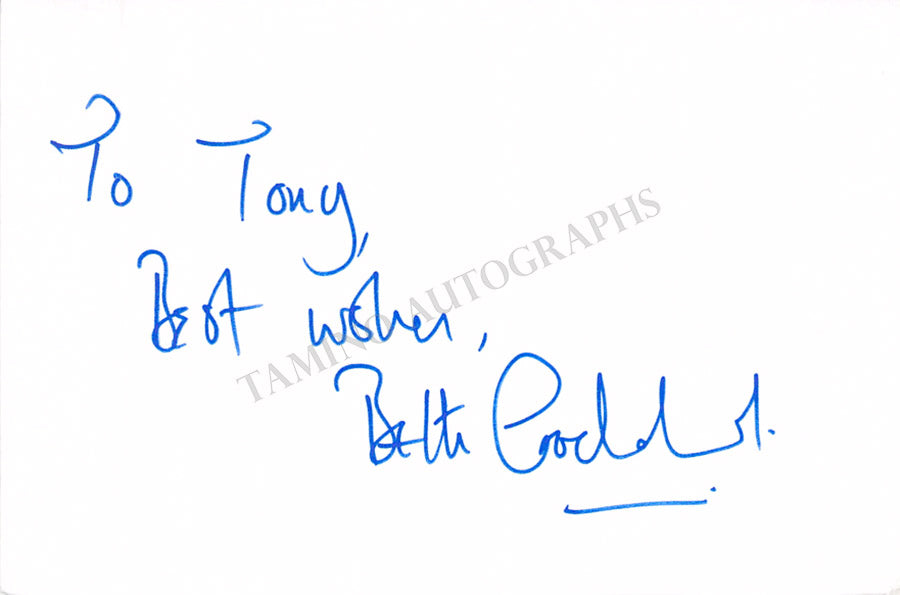 To Tony,
Best wishes,
TAMINO AUTOGRAPHS
Beth Goddard.